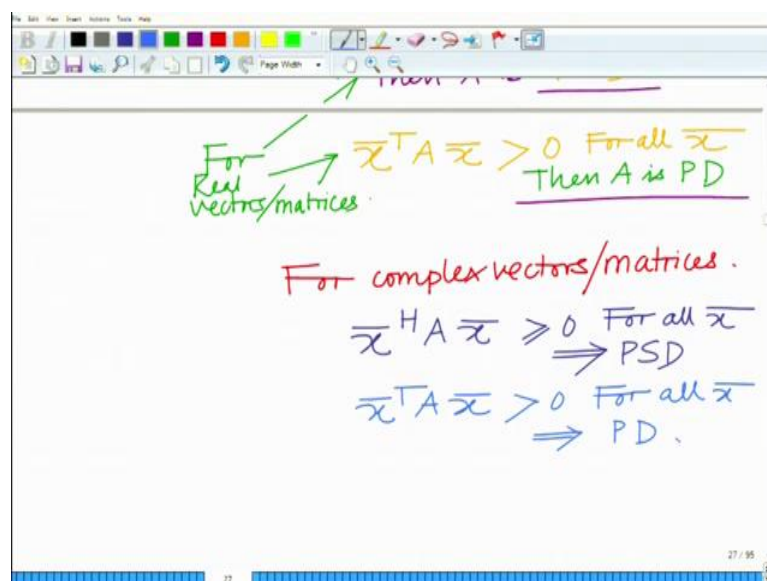 File Edit View Insert Actions Tools Help
B I
Page Width
Then A is
For
Real
vectors/matrices.
x̅ᵀ A x̅ > 0 For all x̅
Then A is PD
For complex vectors/matrices.
x̅ᴴ A x̅ ≥ 0 For all x̅
⇒ PSD
x̅ᵀ A x̅ > 0 For all x̅
⇒ PD.
27 / 95
27